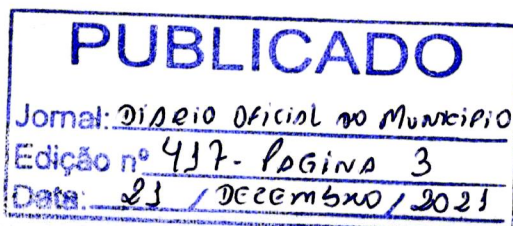 PUBLICADO
Jornal: DiÁRIO OFICIAL DO MUNICÍPIO
Edição nº 417 - PÁGINA 3
Data: 21 / DEZEMBRO / 2021